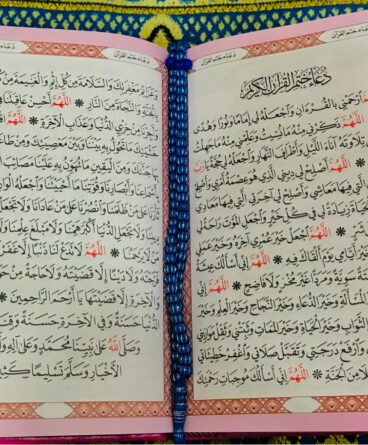 دعاء ختم القرآن
دُعَاءُ خَتْمِ القُرْآنِ الكَرِيمِ
ارْحَمْنِي بِالْقُرْءَانِ وَاجْعَلْهُ لِي إِمَامًا وَنُورًا وَهُدًى
❋ اللَّهُمَّ ذَكِّرْنِي مِنْهُ مَا نَسِيتُ وَعَلِّمْنِي مِنْهُ مَا جَهِلْتُ
تِلَاوَتَهُ آنَاءَ اللَّيْلِ وَأَطْرَافَ النَّهَارِ وَاجْعَلْهُ لِي حُجَّةً يَارَبَّ
❋ اللَّهُمَّ أَصْلِحْ لِي دِينِي الَّذِي هُوَ عِصْمَةُ أَمْرِي وَأَصْلِحْ
الَّتِي فِيهَا مَعَاشِي وَأَصْلِحْ لِي آخِرَتِي الَّتِي فِيهَا مَعَادِي
الْحَيَاةَ زِيَادَةً لِي فِي كُلِّ خَيْرٍ وَاجْعَلِ الْمَوْتَ رَاحَةً لِي
شَرٍّ ❋ اللَّهُمَّ اجْعَلْ خَيْرَ عُمْرِي آخِرَهُ وَخَيْرَ عَمَلِي
وَخَيْرَ أَيَّامِي يَوْمَ أَلْقَاكَ فِيهِ ❋ اللَّهُمَّ إِنِّي أَسْأَلُكَ عِيشَةً
وَمِيتَةً سَوِيَّةً وَمَرَدًّا غَيْرَ مُخْزٍ وَلَا فَاضِحٍ ❋ اللَّهُمَّ إِنِّي
الْمَسْأَلَةِ وَخَيْرَ الدُّعَاءِ وَخَيْرَ النَّجَاحِ وَخَيْرَ الْعِلْمِ وَخَيْرَ
الثَّوَابِ وَخَيْرَ الْحَيَاةِ وَخَيْرَ الْمَمَاتِ وَثَبِّتْنِي وَثَقِّلْ مَوَازِينِي
وَارْفَعْ دَرَجَتِي وَتَقَبَّلْ صَلَاتِي وَاغْفِرْ خَطِيئَاتِي
مِنَ الْجَنَّةِ ❋ اللَّهُمَّ إِنِّي أَسْأَلُكَ مُوجِبَاتِ رَحْمَتِكَ
دعاء ختم القرآن
وَعَزَائِمَ مَغْفِرَتِكَ وَالسَّلَامَةَ مِنْ كُلِّ إِثْمٍ وَالْغَنِيمَةَ مِنْ
بِالْجَنَّةِ وَالنَّجَاةَ مِنَ النَّارِ ❋ اللَّهُمَّ أَحْسِنْ عَاقِبَتَنَا
وَأَجِرْنَا مِنْ خِزْيِ الدُّنْيَا وَعَذَابِ الْآخِرَةِ ❋ اللَّهُمَّ
خَشْيَتِكَ مَا تَحُولُ بِهِ بَيْنَنَا وَبَيْنَ مَعْصِيَتِكَ وَمِنْ طَاعَتِكَ
جَنَّتَكَ وَمِنَ الْيَقِينِ مَا تُهَوِّنُ بِهِ عَلَيْنَا مَصَائِبَ
بِأَسْمَاعِنَا وَأَبْصَارِنَا وَقُوَّتِنَا مَا أَحْيَيْتَنَا وَاجْعَلْهُ الْوَارِثَ
ثَأْرَنَا عَلَى مَنْ ظَلَمَنَا وَانْصُرْنَا عَلَى مَنْ عَادَانَا وَلَا تَجْعَلْ
دِينِنَا وَلَا تَجْعَلِ الدُّنْيَا أَكْبَرَ هَمِّنَا وَلَا مَبْلَغَ عِلْمِنَا
مَنْ لَا يَرْحَمُنَا ❋ اللَّهُمَّ لَا تَدَعْ لَنَا ذَنْبًا إِلَّا غَفَرْتَهُ
وَلَا دَيْنًا إِلَّا قَضَيْتَهُ وَلَا حَاجَةً مِنْ حَوَائِجِ
وَالْآخِرَةِ إِلَّا قَضَيْتَهَا يَا أَرْحَمَ الرَّاحِمِينَ ❋
الدُّنْيَا حَسَنَةً وَفِي الْآخِرَةِ حَسَنَةً وَقِنَا
وَصَلَّى اللَّهُ عَلَى نَبِيِّنَا مُحَمَّدٍ وَعَلَى آلِهِ
الْأَخْيَارِ وَسَلَّمَ تَسْلِيمًا كَثِيرًا